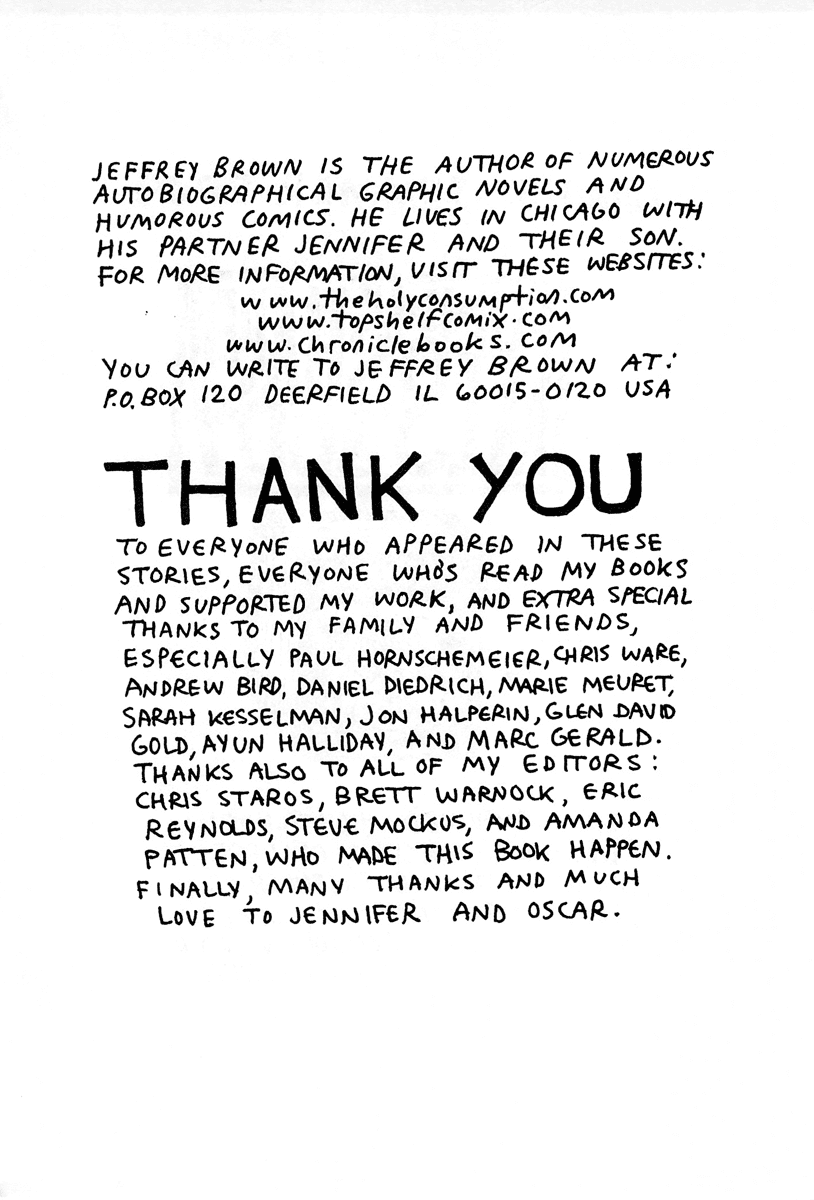 JEFFREY BROWN IS THE AUTHOR OF NUMEROUS
AUTOBIOGRAPHICAL GRAPHIC NOVELS AND
HUMOROUS COMICS. HE LIVES IN CHICAGO WITH
HIS PARTNER JENNIFER AND THEIR SON.
FOR MORE INFORMATION, VISIT THESE WEBSITES:
www.theholyconsumption.com
www.topshelfcomix.com
www.chroniclebooks.com
YOU CAN WRITE TO JEFFREY BROWN AT:
P.O. BOX 120 DEERFIELD IL 60015-0120 USA
THANK YOU
TO EVERYONE WHO APPEARED IN THESE
STORIES, EVERYONE WHO'S READ MY BOOKS
AND SUPPORTED MY WORK, AND EXTRA SPECIAL
THANKS TO MY FAMILY AND FRIENDS,
ESPECIALLY PAUL HORNSCHEMEIER, CHRIS WARE,
ANDREW BIRD, DANIEL DIEDRICH, MARIE MEURET,
SARAH KESSELMAN, JON HALPERIN, GLEN DAVID
GOLD, AYUN HALLIDAY, AND MARC GERALD.
THANKS ALSO TO ALL OF MY EDITORS:
CHRIS STAROS, BRETT WARNOCK, ERIC
REYNOLDS, STEVE MOCKUS, AND AMANDA
PATTEN, WHO MADE THIS BOOK HAPPEN.
FINALLY, MANY THANKS AND MUCH
LOVE TO JENNIFER AND OSCAR.